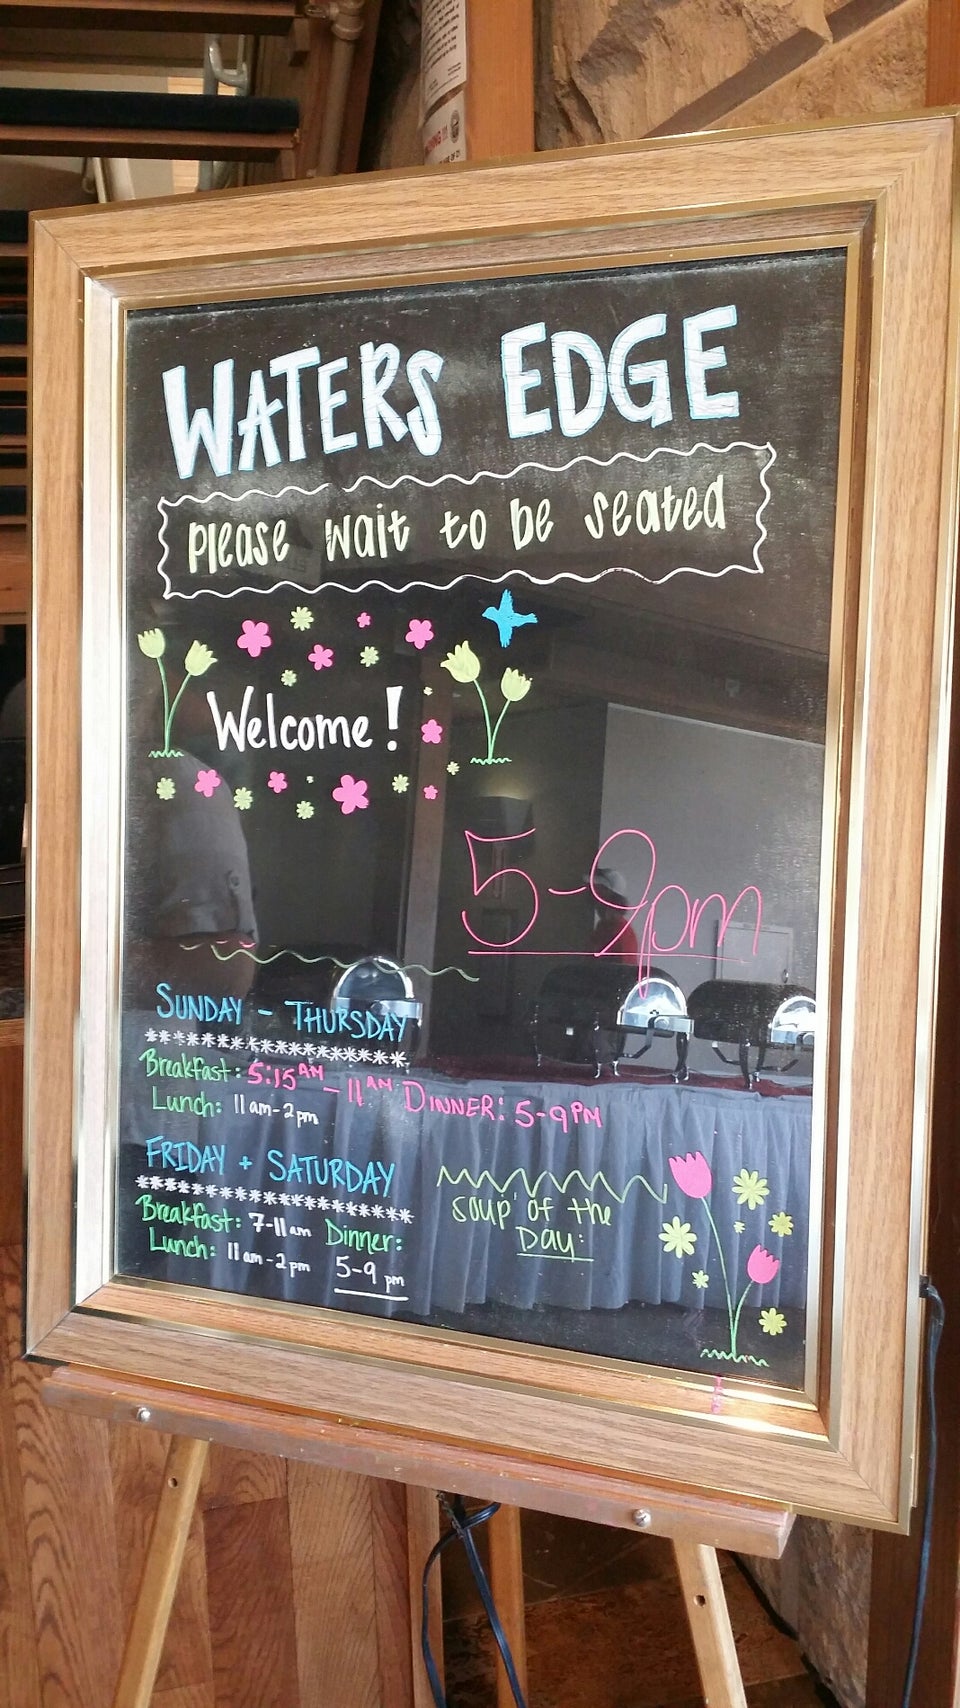 WATERS EDGE
please wait to be seated
Welcome!
5-9pm
SUNDAY - THURSDAY
*******************
Breakfast: 5:15 AM - 11 AM DINNER: 5-9 PM
Lunch: 11am-2pm
FRIDAY + SATURDAY
********************
Breakfast: 7-11am Dinner:
Lunch: 11am-2pm 5-9 pm
Soup of the
Day: